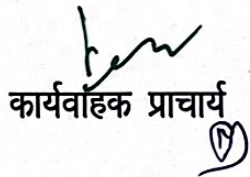 कार्यवाहक प्राचार्य